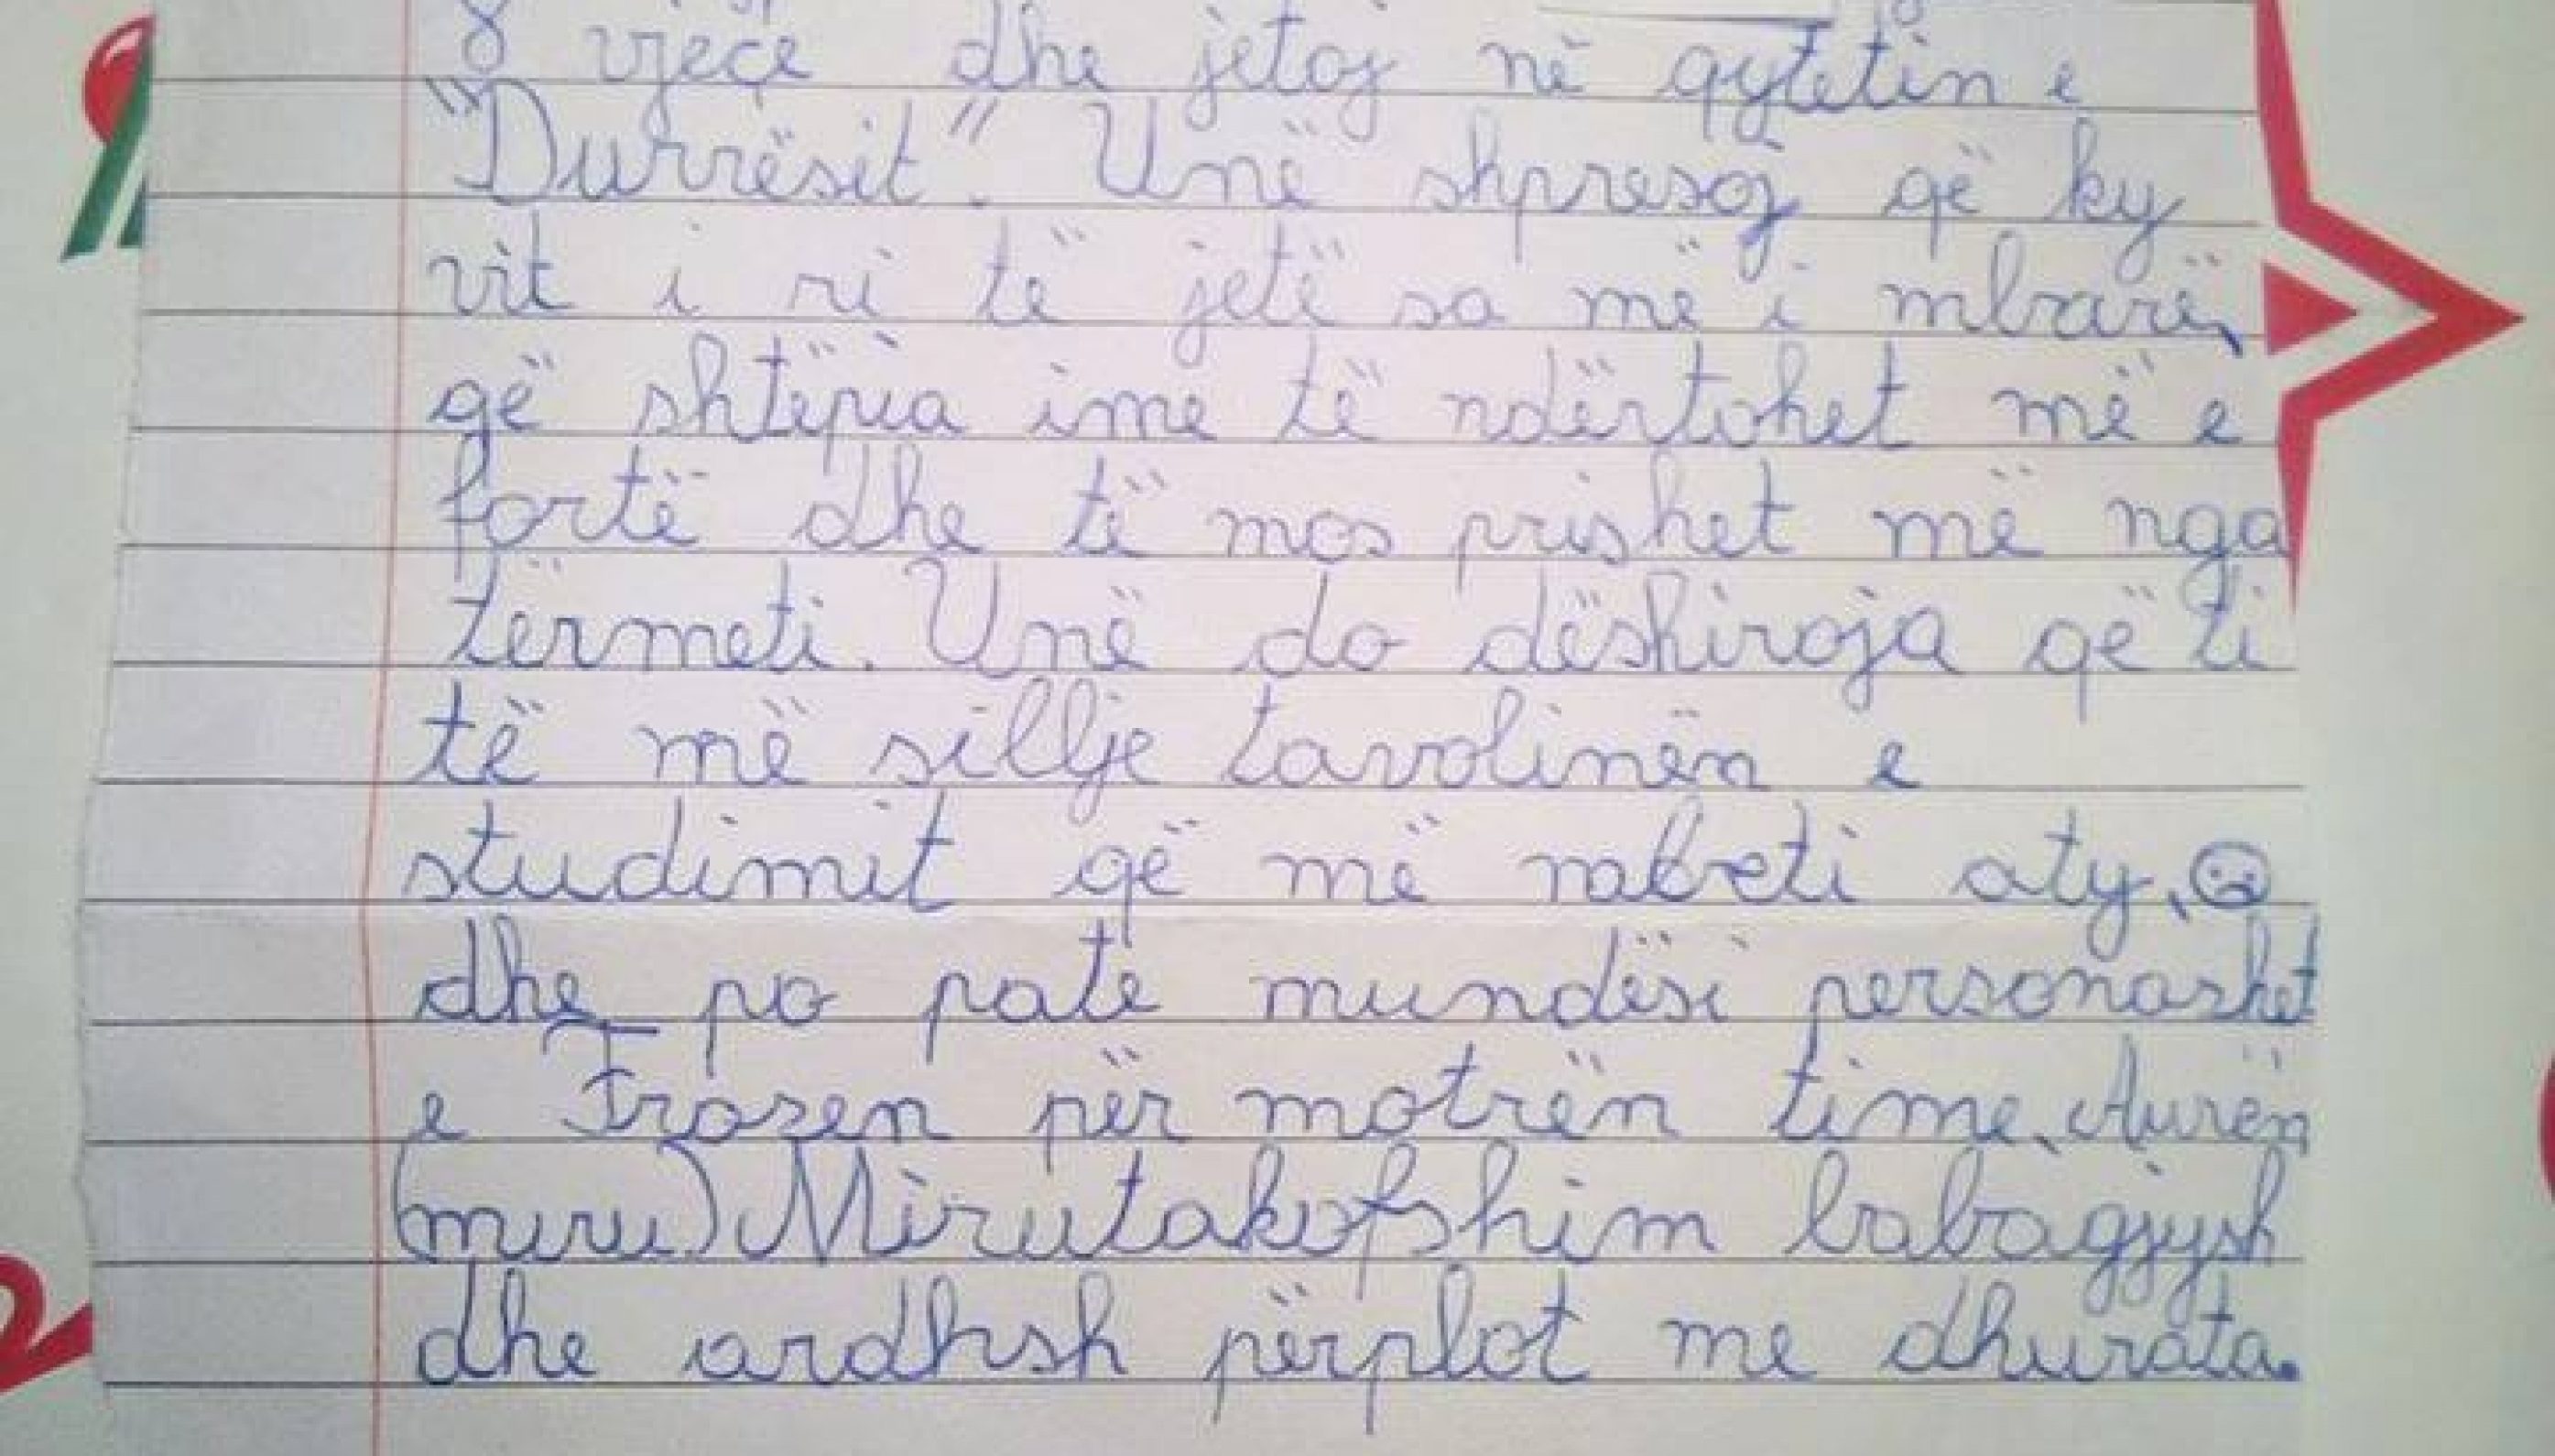 8 vjeçe dhe jetoj në qytetin e
"Durrësit". Unë shpresoj që ky
vit i ri të jetë sa më i mbarë,
që shtëpia ime të ndërtohet më e
fortë dhe të mos prishet më nga
tërmeti. Unë do dëshiroja që ti
të më sillje tavolinën e
studimit që më mbeti aty,
dhe po pate mundësi personazhet
e Frozen për motrën time, Aurën
(miru) Mirutakofshim babagjysh
dhe ardhsh përplot me dhurata.